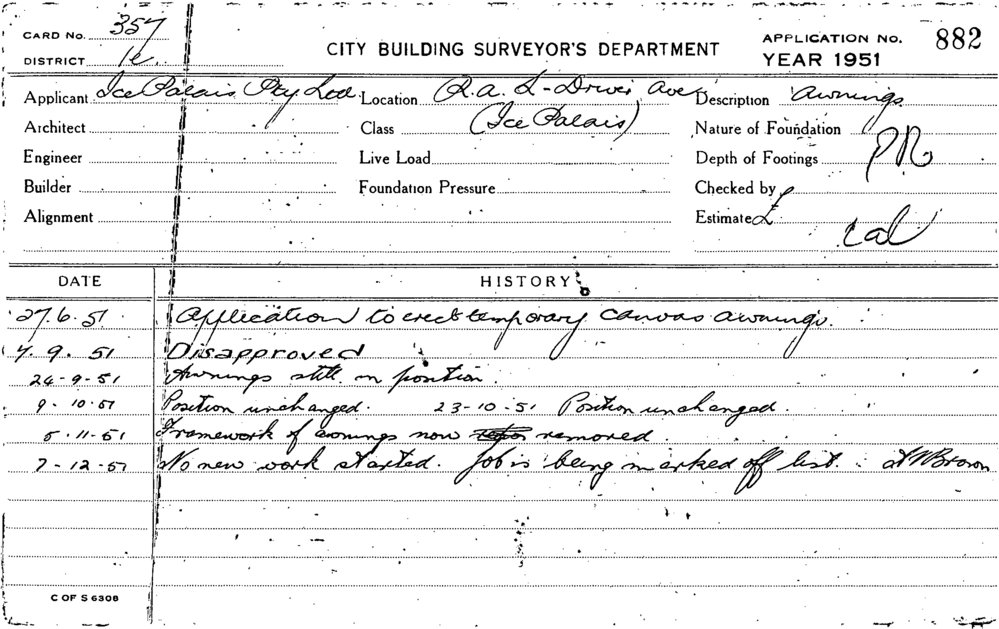 CARD No. 357
DISTRICT 1e.
CITY BUILDING SURVEYOR'S DEPARTMENT
APPLICATION No. 882
YEAR 1951
Applicant Ice Palais Pty Ltd. Location R.A.S - Driver Ave Description Awnings
Architect Class (Ice Palais) Nature of Foundation
Engineer Live Load Depth of Footings
Builder Foundation Pressure Checked by
Alignment Estimate £
DATE HISTORY
27.6.51 Application to erect temporary canvas awnings.
4.9.51 Disapproved
24-9-51 Awnings still in position.
9-10-51 Position unchanged. 23-10-51 Position unchanged.
5-11-51 Framework of awnings now removed.
7-12-51 No new work started. Job is being marked off list. Brown
C OF S 6308